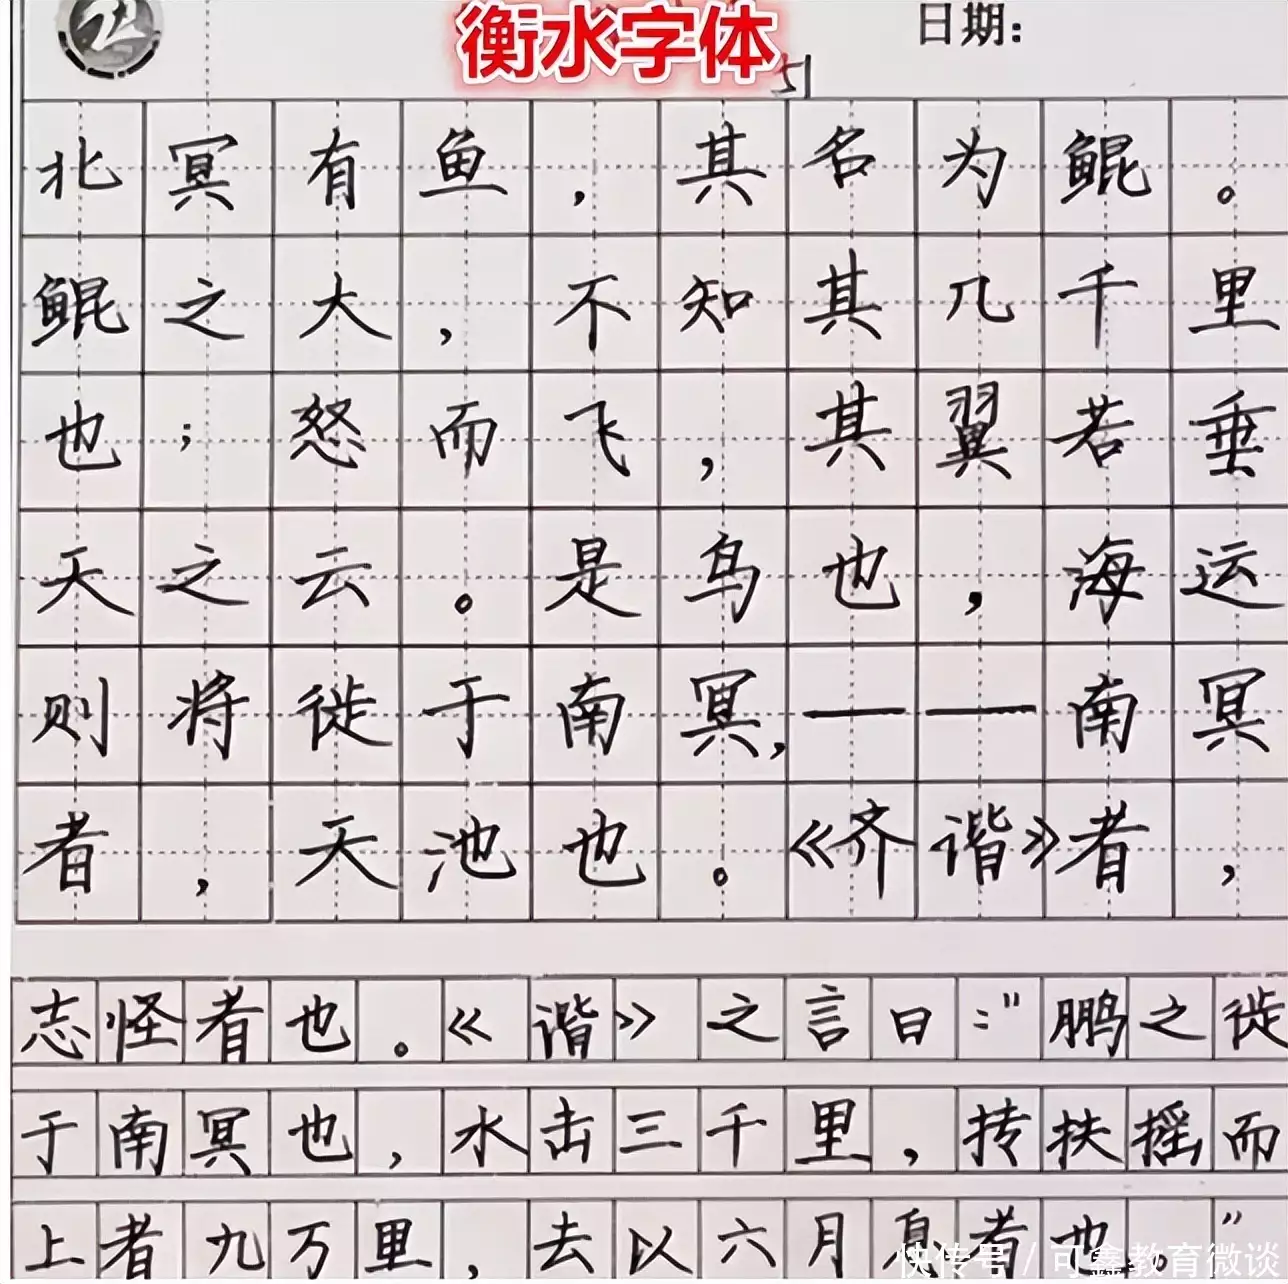 衡水字体
日期:
51
北冥有鱼，其名为鲲。
鲲之大，不知其几千里
也；怒而飞，其翼若垂
天之云。是鸟也，海运
则将徙于南冥，——南冥
者，天池也。《齐谐》者，
志怪者也。《谐》之言曰："鹏之徙
于南冥也，水击三千里，抟扶摇而
上者九万里，去以六月息者也。"
快传号 / 可鑫教育微谈